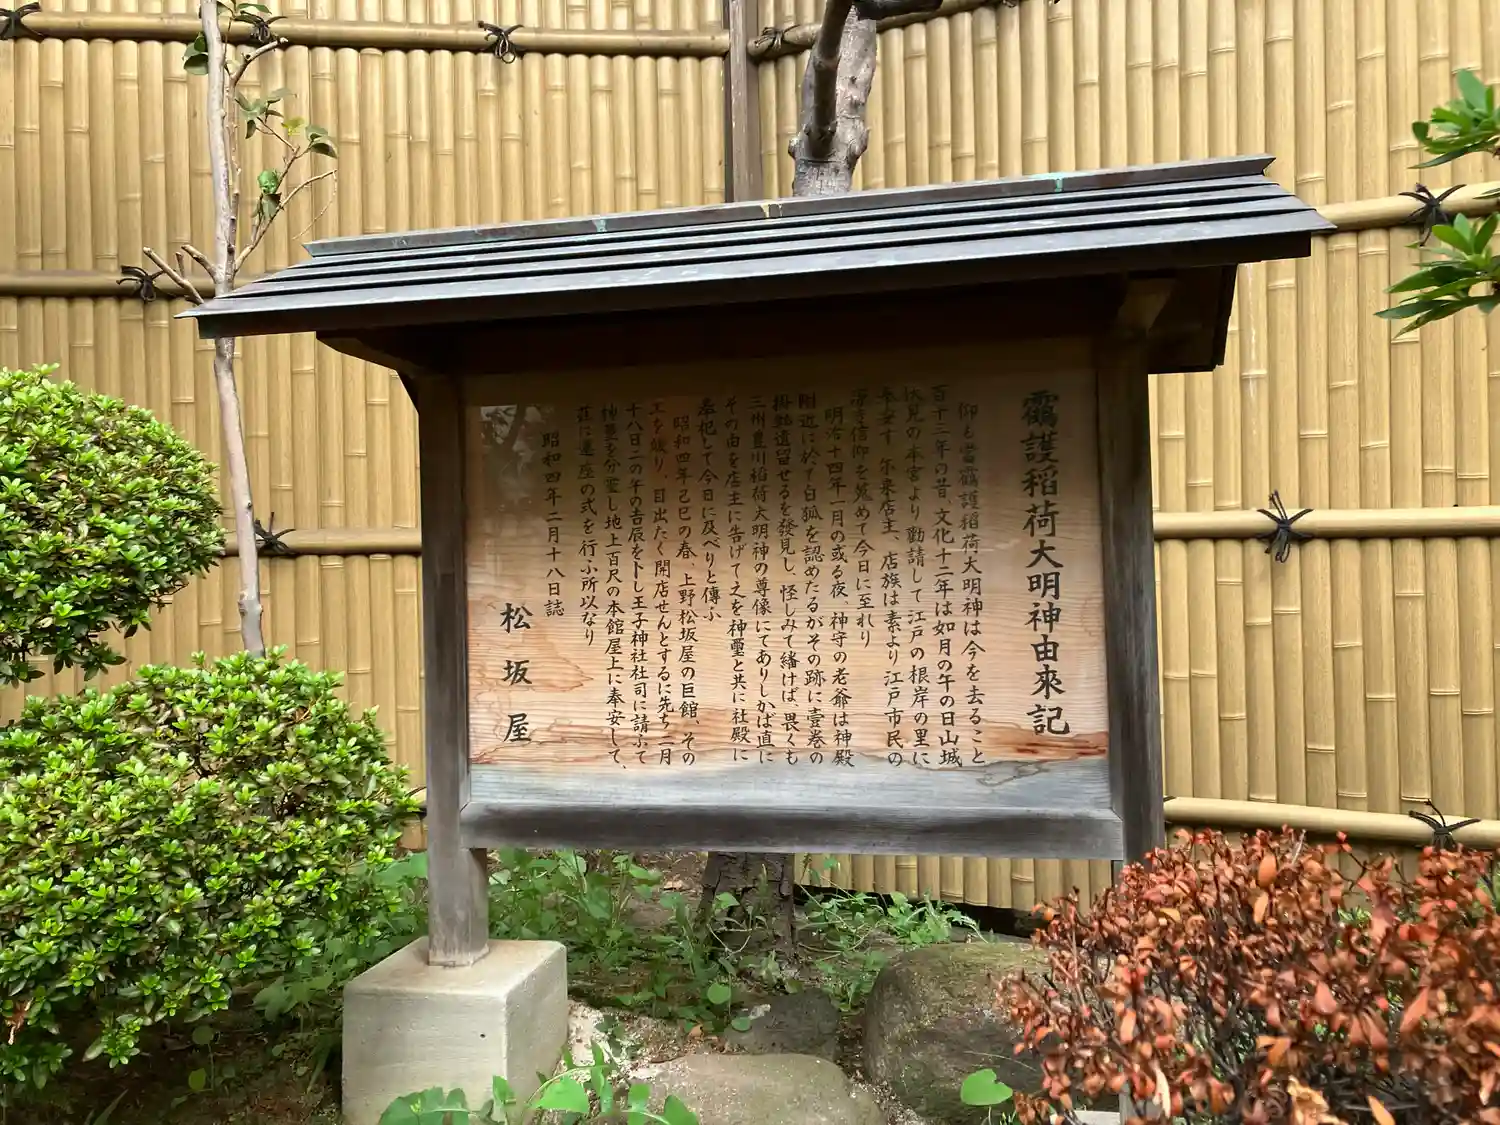 靍護稲荷大明神由来記
仰も當靍護稲荷大明神は今を去ること
百十三年の昔、文化十二年は如月の午の日山城
伏見の本宮より勸請して江戸の根岸の里に
奉安す 尓来店主、店族は素より江戸市民の
深き信仰を蒐めて今日に至れり
明治十四年一月の或る夜、神守の老爺は神殿
附近に於て白狐を認めたるがその跡に壹巻の
掛軸遺留せるを發見し、怪しみて繙けば、畏くも
三州豊川稲荷大明神の尊像にてありしかば直に
その由を店主に告げて之を神璽と共に社殿に
奉祀して今日に及べりと傳ふ
昭和四年己巳の春、上野松坂屋の巨館、その
工を竣り、目出たく開店せんとするに先ち二月
十八日二の午の吉辰を卜し王子神社社司に請ふて
神霊を分霊し地上百尺の本館屋上に奉安して、
茲に遷座の式を行ふ所以なり
昭和四年二月十八日誌
松坂屋